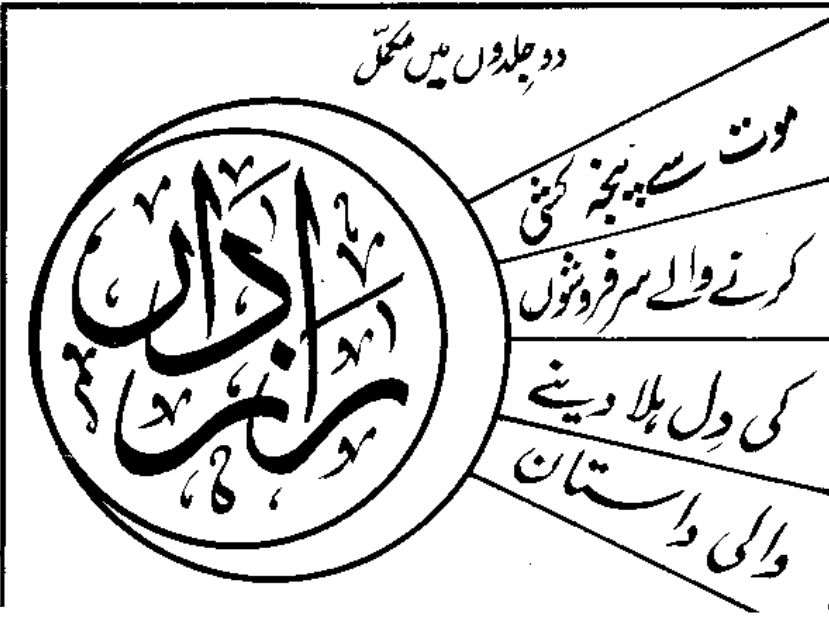 دو جِلدوں میں مکمّل
راز داں
موت سے پنجہ کشی
کرنے والے سرفروشوں
کی دِل ہلا دینے
والی داستان